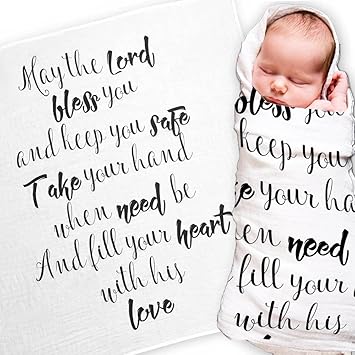 May the Lord
bless you
and keep you safe
Take your hand
when need be
And fill your heart
with his
love
bless you
keep you
e your ha
en need
fill your
with his